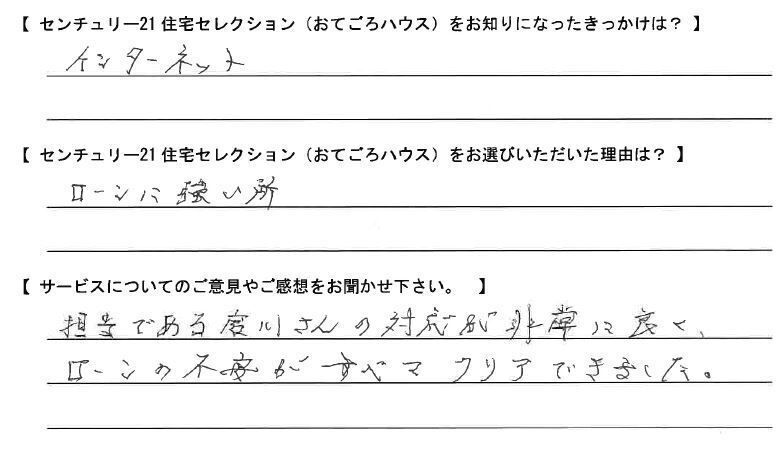 【 センチュリー21 住宅セレクション（おてごろハウス）をお知りになったきっかけは？ 】
インターネット
【 センチュリー21 住宅セレクション（おてごろハウス）をお選びいただいた理由は？ 】
ローンに強い所
【 サービスについてのご意見やご感想をお聞かせ下さい。 】
担当である川さんの対応が非常に良く、
ローンの不安がすべてクリアできました。